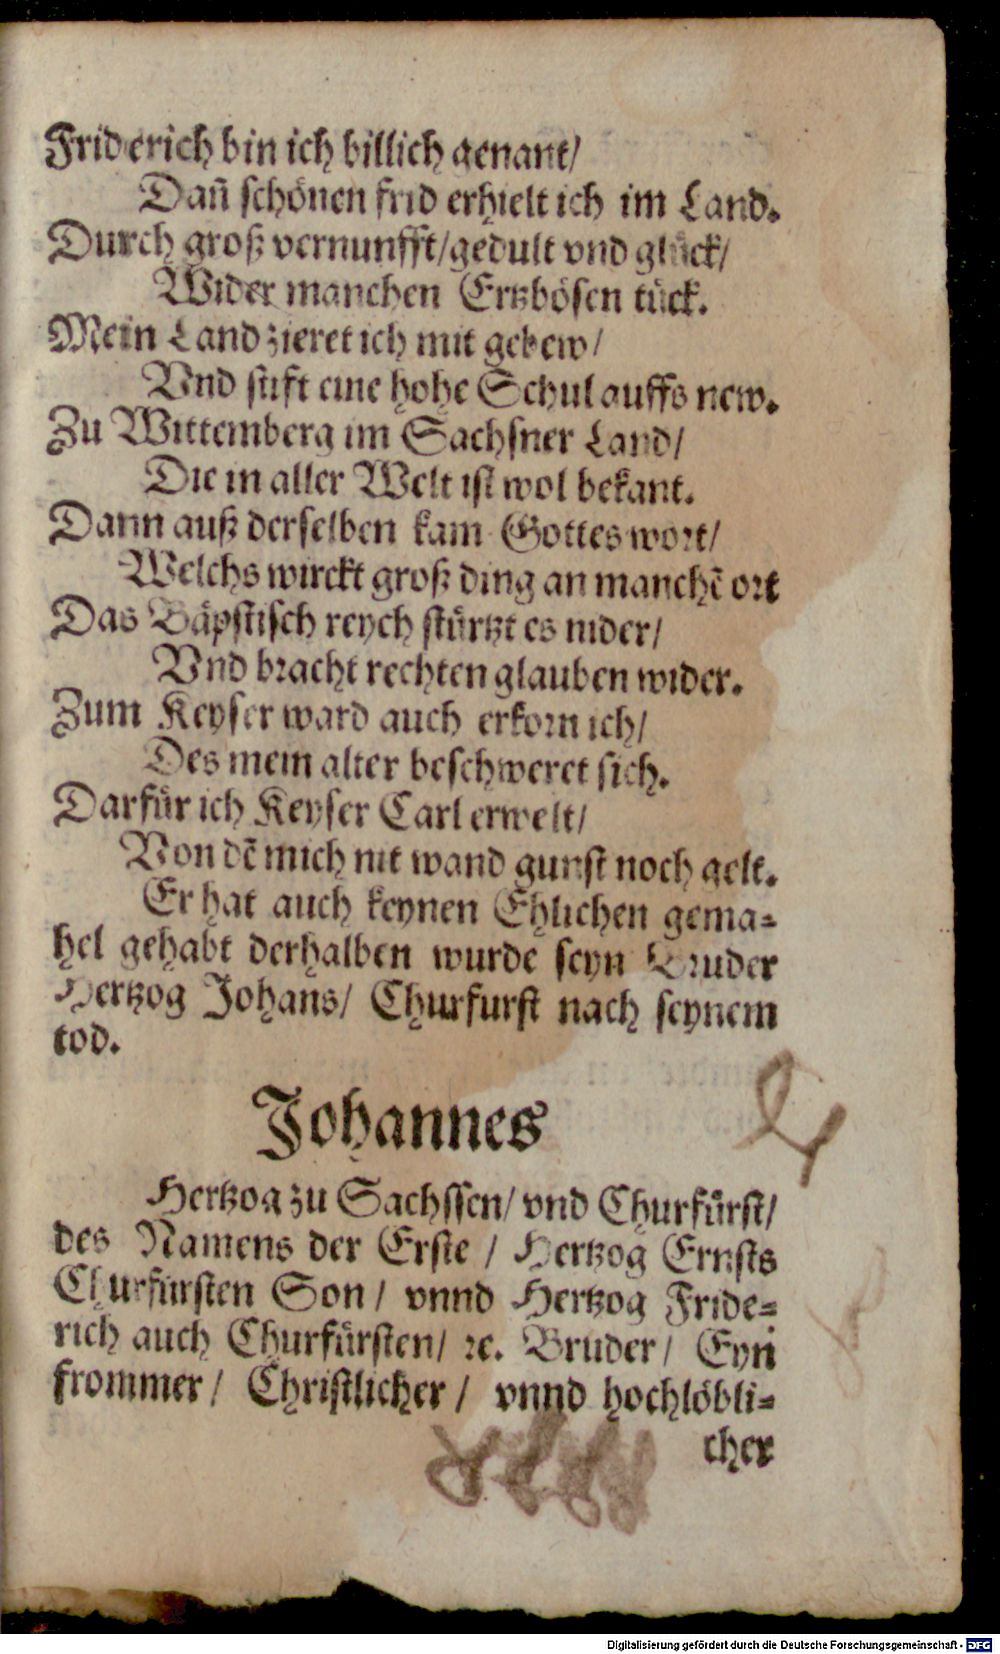 Friderich bin ich billich genant/
Dañ schönen frid erhielt ich im Land.
Durch groß vernunfft/gedult vnd glück/
Wider manchen Ertzbösen tück.
Mein Land zieret ich mit gebew/
Vnd stift eine hohe Schul auffs new.
Zu Wittemberg im Sachsner Land/
Die in aller Welt ist wol bekant.
Dann auß derselben kam Gottes wort/
Welchs wirckt groß ding an manchē ort
Das Bäpstisch reych stürtzt es nider/
Vnd bracht rechten glauben wider.
Zum Keyser ward auch erkorn ich/
Des mein alter beschweret sich.
Darfür ich Keyser Carl erwelt/
Von dē mich nit wand gunst noch gelt.
Er hat auch keynen Ehlichen gema-
hel gehabt derhalben wurde seyn Bruder
Hertzog Johans/ Churfurst nach seynem
tod.
Johannes
Hertzog zu Sachssen/ vnd Churfürst/
des Namens der Erste / Hertzog Ernsts
Churfürsten Son / vnnd Hertzog Fride-
rich auch Churfürsten/ ꝛc. Bruder/ Eyn
frommer/ Christlicher / vnnd hochlöbli-
cher
Digitalisierung gefördert durch die Deutsche Forschungsgemeinschaft - DFG